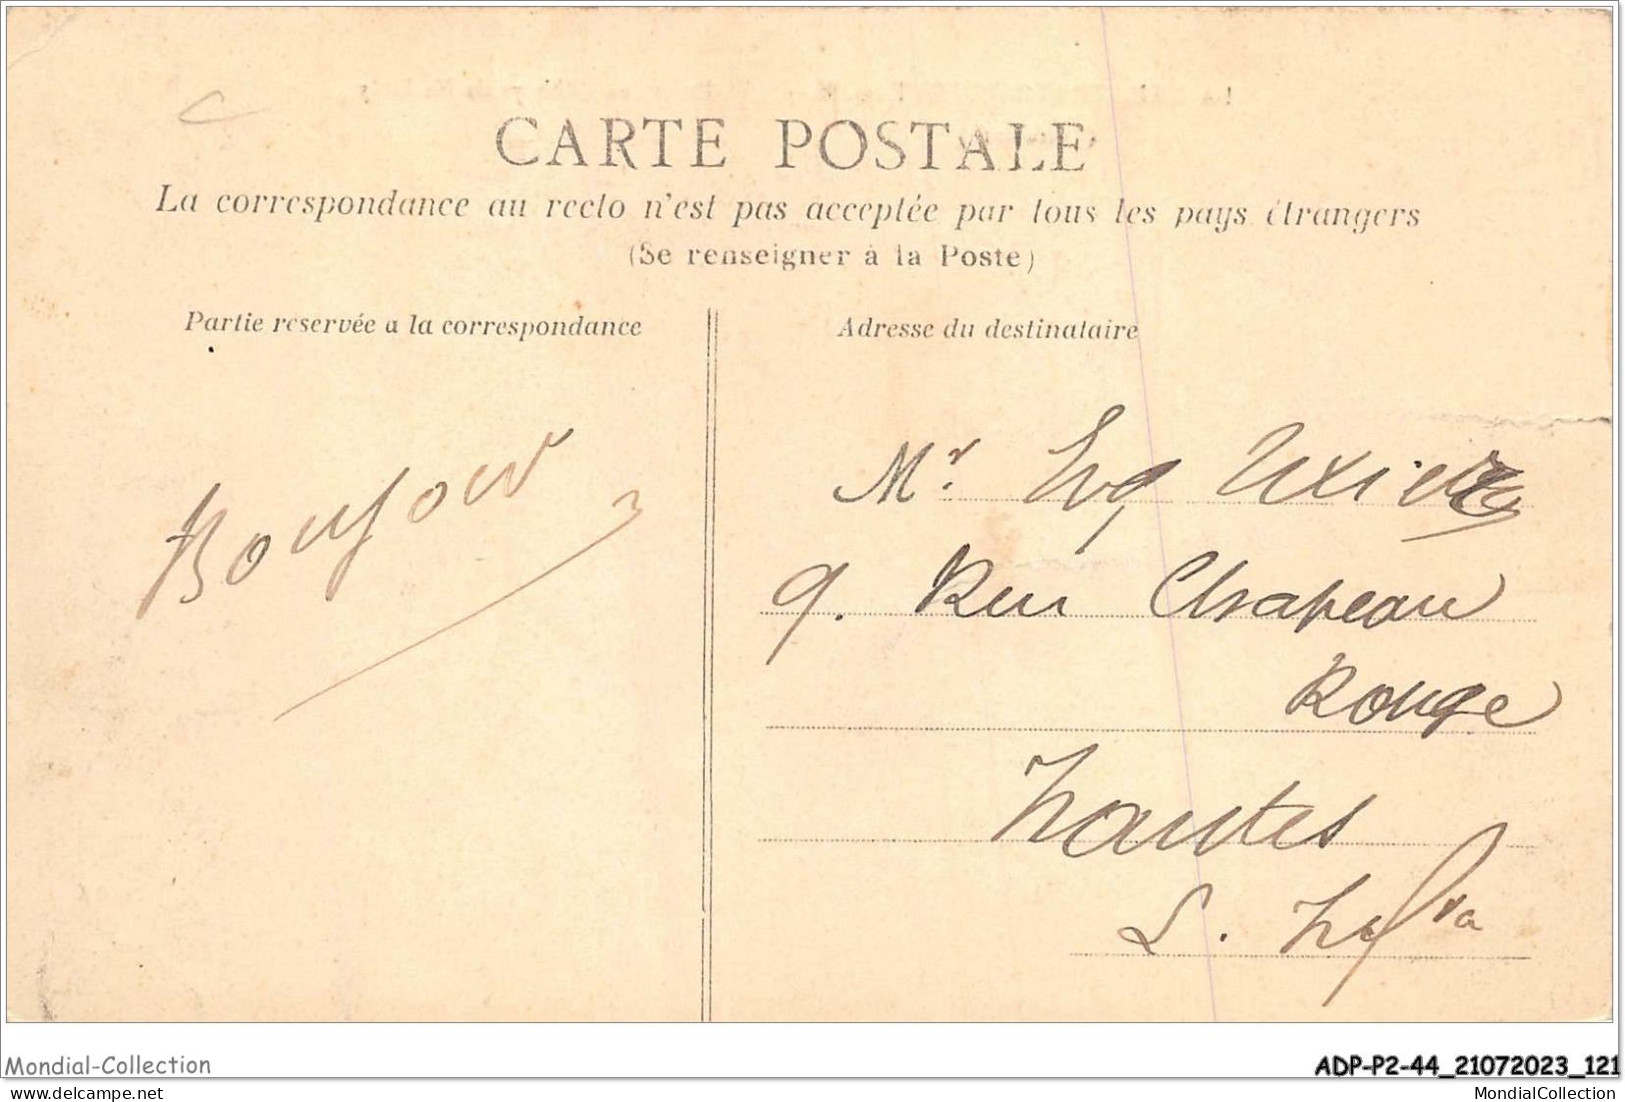 CARTE POSTALE
La correspondance au recto n'est pas acceptée par tous les pays étrangers
(Se renseigner à la Poste)
Partie reservée a la correspondance
Adresse du destinataire
Bonjour
Mr.
9. Rue Chapeau
Rouge
Nantes
L. Infra
Mondial-Collection
ADP-P2-44_21072023_121
MondialCollection
MondialCollection